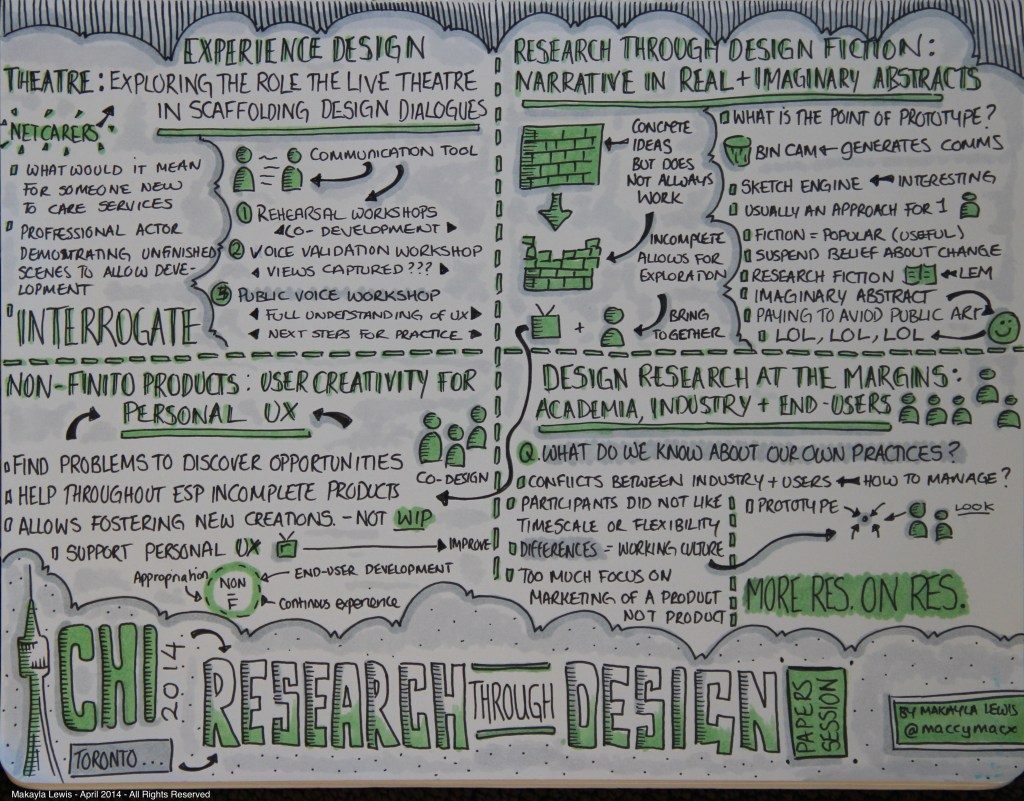 EXPERIENCE DESIGN
THEATRE: EXPLORING THE ROLE THE LIVE THEATRE
IN SCAFFOLDING DESIGN DIALOGUES
NET CARERS
WHAT WOULD IT MEAN
FOR SOMEONE NEW
TO CARE SERVICES
PROFFESSIONAL ACTOR
DEMONTRATING UNFINISHED
SCENES TO ALLOW DEVE-
LOPMENT
INTERROGATE
COMMUNICATION TOOL
1 REHEARSAL WORKSHOPS
CO-DEVELOPMENT
2 VOICE VALIDATION WORKSHOP
VIEWS CAPTURED ???
3 PUBLIC VOICE WORKSHOP
FULL UNDERSTANDING OF UX
NEXT STEPS FOR PRACTICE
RESEARCH THROUGH DESIGN FICTION:
NARRATIVE IN REAL + IMAGINARY ABSTRACTS
CONCRETE
IDEAS
BUT DOES
NOT ALLWAYS
WORK
INCOMPLETE
ALLOWS FOR
EXPLORATION
+
BRING
TOGETHER
WHAT IS THE POINT OF PROTOTYPE?
BIN CAM GENERATES COMMS
SKETCH ENGINE INTERESTING
USUALLY AN APPROACH FOR 1
FICTION = POPULAR (USEFUL)
SUSPEND BELIEF ABOUT CHANGE
RESEARCH FICTION LEM
IMAGINARY ABSTRACT
PAYING TO AVIOD PUBLIC ART
LOL, LOL, LOL
NON-FINITO PRODUCTS: USER CREATIVITY FOR
PERSONAL UX
FIND PROBLEMS TO DISCOVER OPPORTUNITIES
CO-DESIGN
HELP THROUGHOUT ESP INCOMPLETE PRODUCTS
ALLOWS FOSTERING NEW CREATIONS. - NOT WIP
SUPPORT PERSONAL UX IMPROVE
Appropriation
NON
=
F
END-USER DEVELOPMENT
Continous experience
DESIGN RESEARCH AT THE MARGINS:
ACADEMIA, INDUSTRY + END-USERS
Q. WHAT DO WE KNOW ABOUT OUR OWN PRACTICES?
CONFLICTS BETWEEN INDUSTRY + USERS HOW TO MANAGE?
PARTICIPANTS DID NOT LIKE
TIMESCALE OR FLEXIBILITY
DIFFERENCES = WORKING CULTURE
TOO MUCH FOCUS ON
MARKETING OF A PRODUCT
NOT PRODUCT
PROTOTYPE
LOOK
MORE RES. ON RES.
CHI
2014
TORONTO...
RESEARCH THROUGH DESIGN
PAPERS
SESSION
BY MAKAYLA LEWIS
@maccymacx
Makayla Lewis - April 2014 - All Rights Reserved